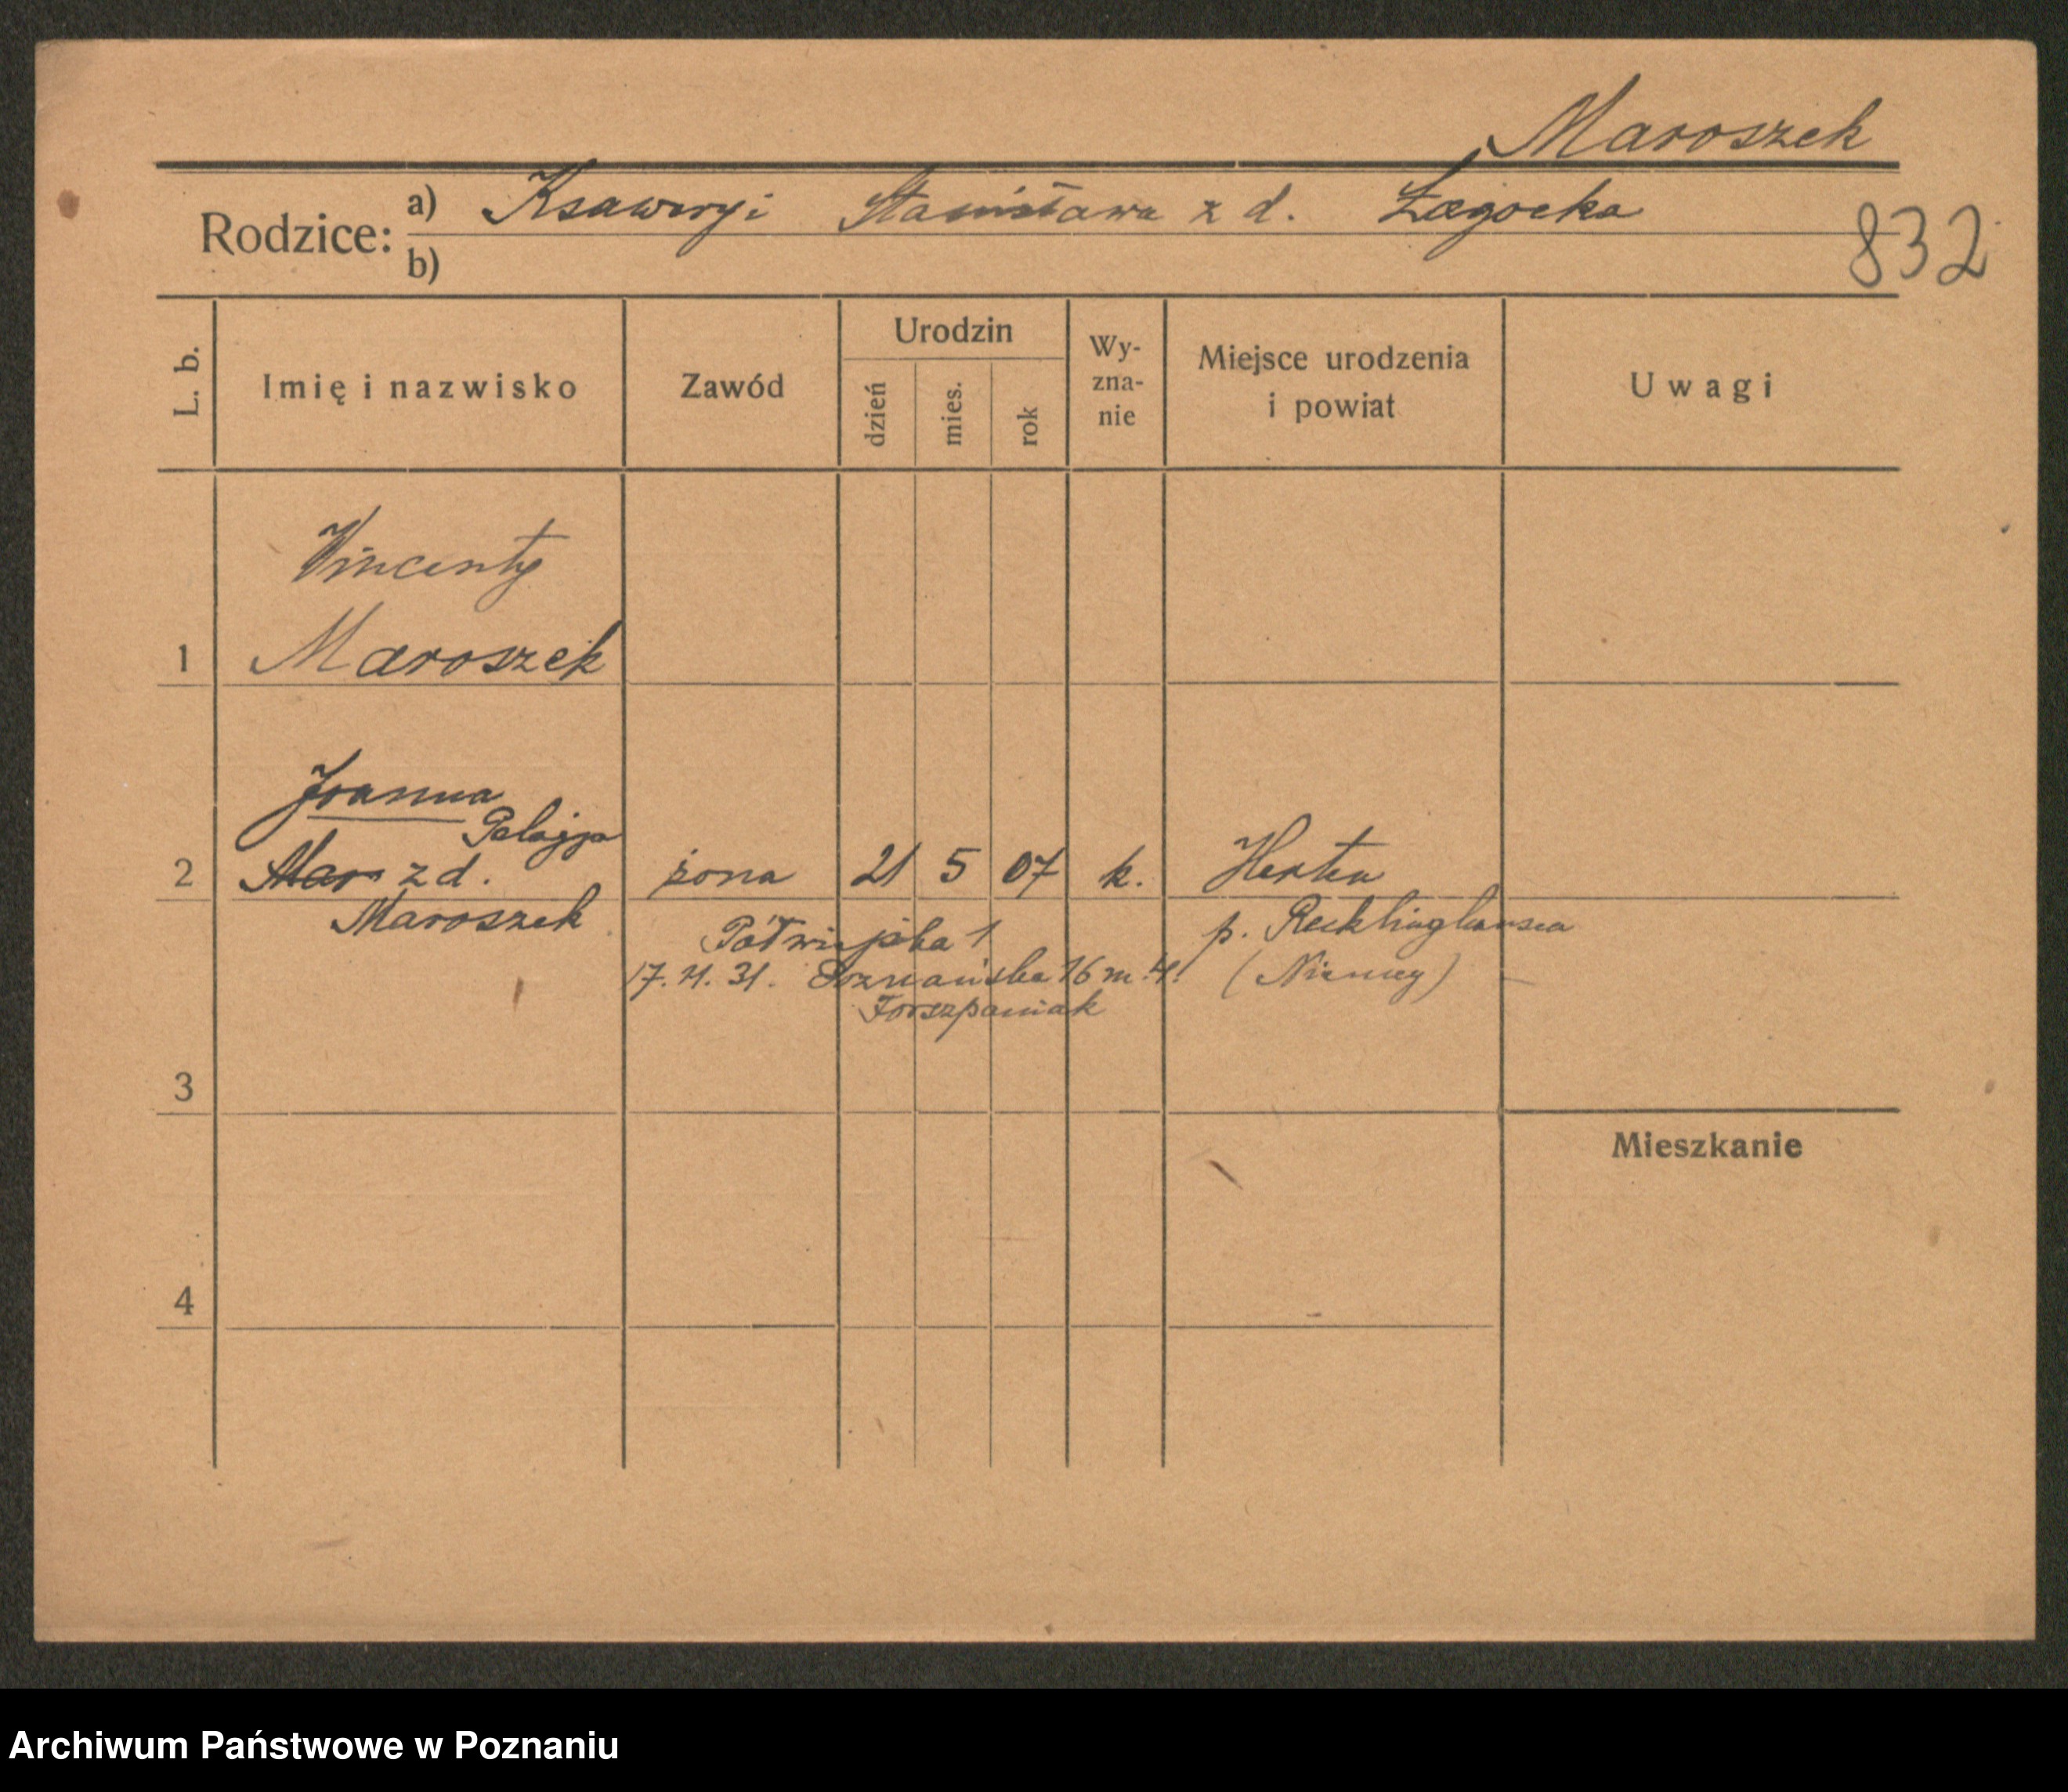 Maroszek
Rodzice: a) Ksawery i Stanisława z d. Łagocka
832
b)
L. b. Imię i nazwisko Zawód Urodzin dzień mies. rok Wy-zna-nie Miejsce urodzenia i powiat Uwagi
Wincenty
1 Maroszek
Joanna
Pelagja
2 Mar z d. żona 21 5 07 k. Herten
Maroszek
Półwiejska 1 p. Recklinghausen
17. 11. 31. Poznańska 16 m. 4. (Niemcy)
Forszpaniak
3
Mieszkanie
4
Archiwum Państwowe w Poznaniu